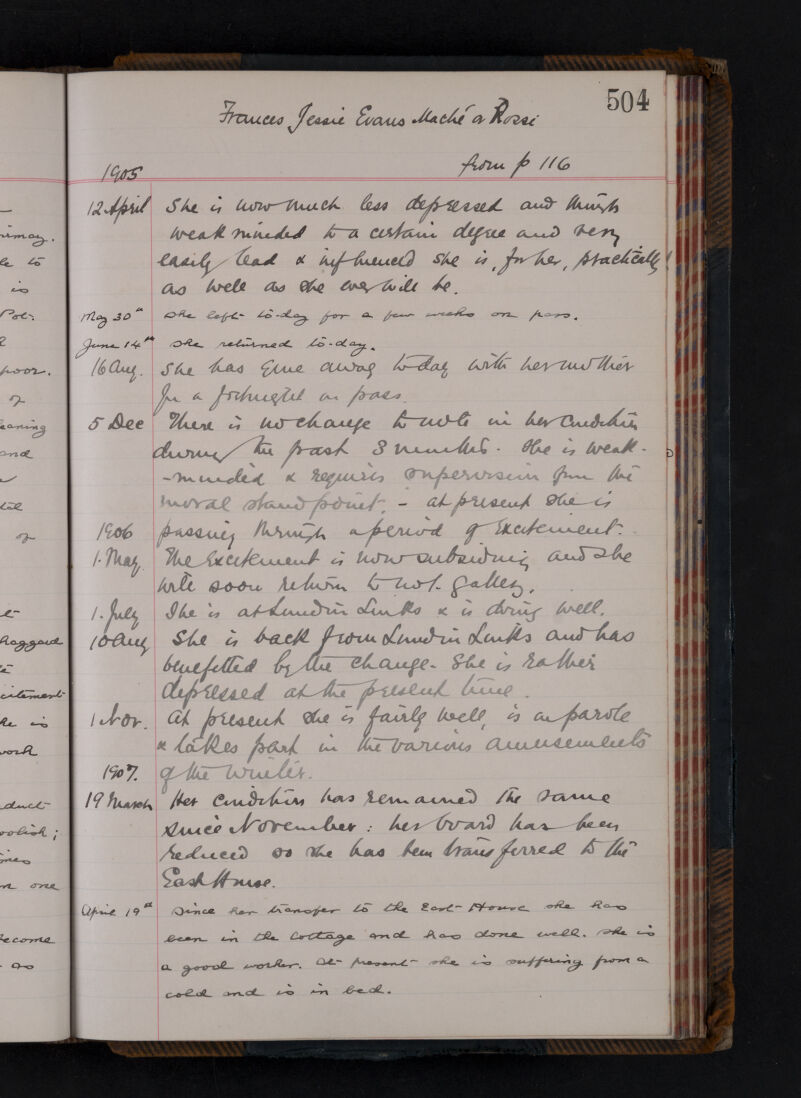 504
Frances Jessie Evans Maché or Rossi
1905 from p 116
12 April She is now much less depressed and though
weak minded to a certain degree and very
easily lead & influenced she is, for her, practically
as well as she ever will be.
May 30th She left to-day for a few weeks on pass.
June 14th She returned to-day.
16 Aug. She has gone away today with her mother
for a fortnight on pass.
5 Dec There is no change to note in her condition
during the past 3 months. She is weak-
-minded & requires supervision from the
moral standpoint, - at present she is
1906 passing through a period of excitement.
1. May. The excitement is now subsiding and she
will soon return to gallery.
1. July She is at Lundin Links & is doing well.
10 Aug She is back from Lundin Links and has
benefitted by the change - She is rather
depressed at the present time.
1 Nov. At present she is fairly well, is on parole
& takes part in the various amusements
1907. of the winter.
19 March Her condition has remained the same
since November: her board has been
reduced so she has been transferred to the
East House.
April 19th Since her transfer to the East House she has
been in the Cottage and has done well. She is
a good worker. At present she is suffering from a
cold and is in bed.
irmay.
le to
is
Pot:
poor.
of
eaning
and
of
haggard
citement
he is
work
duct
oolish;
ones
on one
become
as